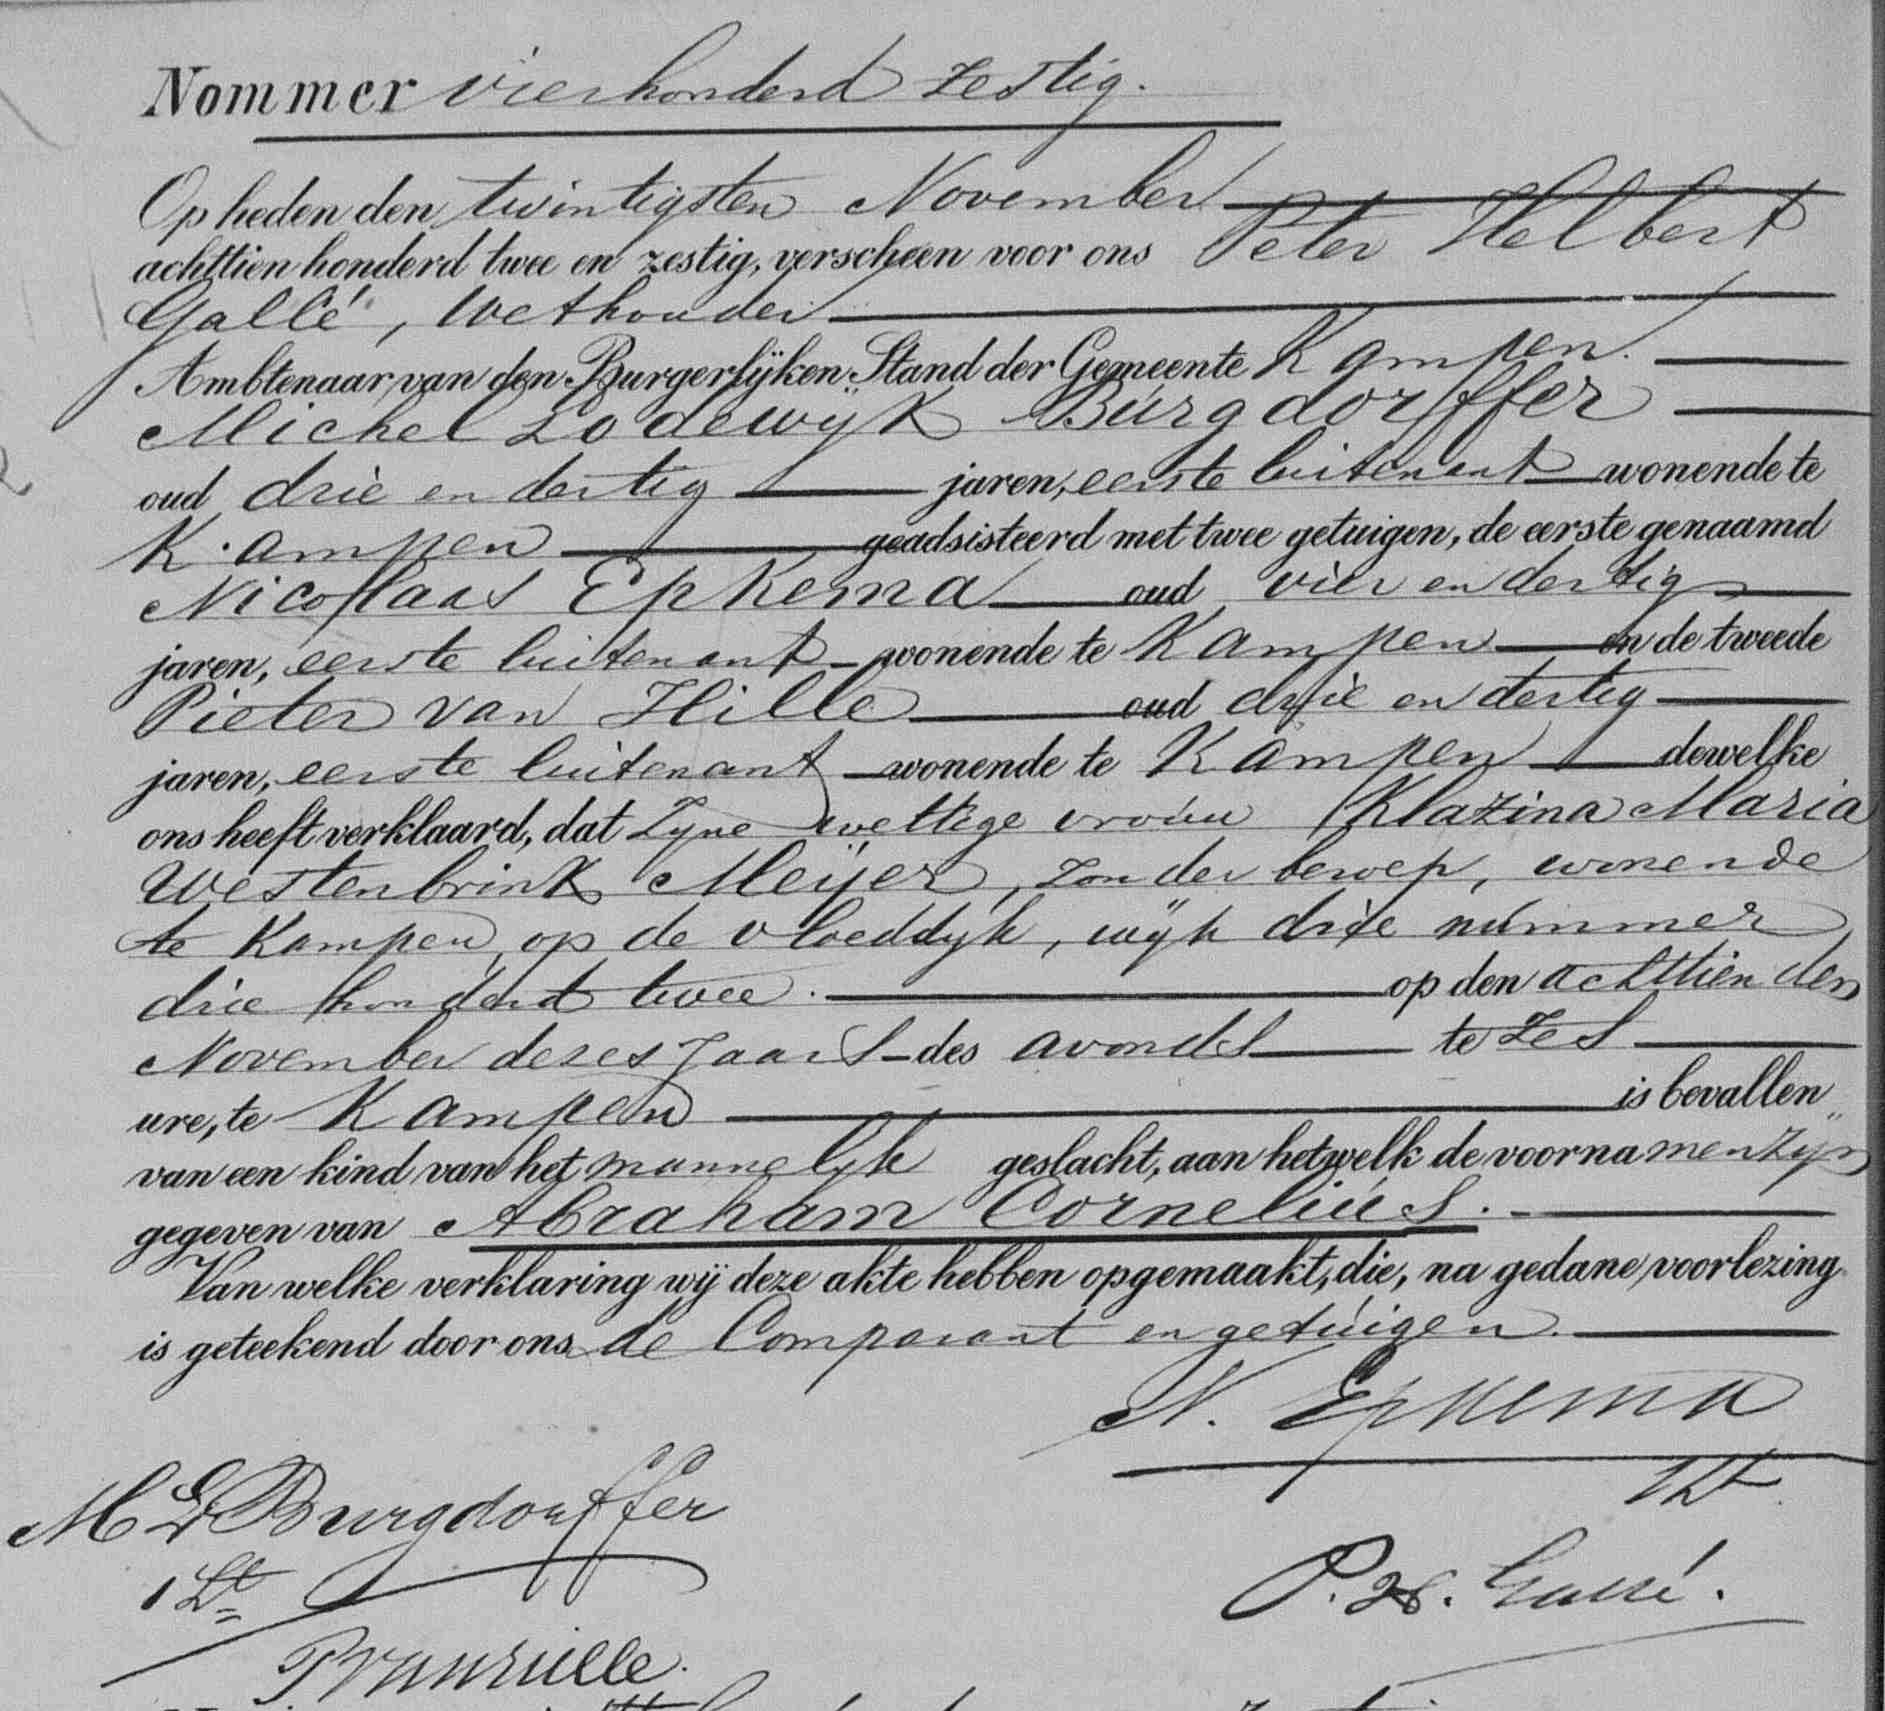 Nommer vierhonderd zestig.
Op heden den twintigsten November
achttien honderd twee en zestig, verscheen voor ons Peter Helbert
Gallé, Wethouder
Ambtenaar van den Burgerlijken Stand der Gemeente Kampen.
Michel Lodewijk Burgdorffer
oud drie en dertig jaren, eerste luitenant wonende te
Kampen geadsisteerd met twee getuigen, de eerste genaamd
Nicolaas Epkema oud vier en dertig
jaren, eerste luitenant wonende te Kampen en de tweede
Pieter van Hille oud drie en dertig
jaren, eerste luitenant wonende te Kampen dewelke
ons heeft verklaard, dat Zyne wettige vrouw Klazina Maria
Westenbrink Meijer, zonder beroep, wonende
te Kampen op de vloeddijk, wijk drie nummer
drie honderd twee. op den achttienden
November dezes Jaars des avonds te zes
ure, te Kampen is bevallen
van een kind van het mannelyk geslacht, aan hetwelk de voornamen zyn
gegeven van Abraham Cornelius.
Van welke verklaring wij deze akte hebben opgemaakt, die, na gedane voorlezing
is geteekend door ons de Comparant en getuigen.
N. Epkema
M L Burgdorffer
1 Lt
P. H. Gallé.
PvanHille.